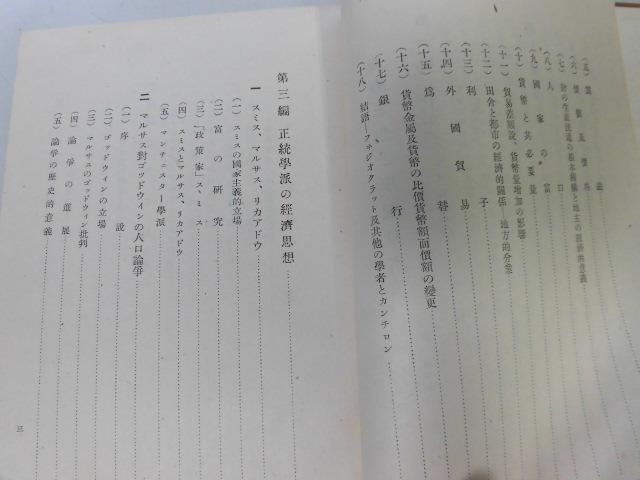 （五）
（六）價値及價格
（七）財の生產流通の根本機構と地主の經濟的意義
（八）人口
（九）國家の富
（十）貨幣と其必要量
（十一）貿易差額說、貨幣量增加の影響
（十二）田舍と都市の經濟的關係―地方的分業
（十三）利子
（十四）外國貿易
（十五）爲替
（十六）貨幣金屬及貨幣の比價貨幣額面價額の變更
（十七）銀行
（十八）結語―フィジオクラット及其他の學者とカンチロン
第三編 正統學派の經濟思想
一 スミス、マルサス、リカアドウ
（一）スミスの國家主義的立場
（二）富の硏究
（三）「政策家」スミス
（四）スミスとマルサス、リカアドウ
（五）マンチェスター學派
二 マルサス對ゴッドウィンの人口論爭
（一）序說
（二）ゴッドウィンの立場
（三）マルサスのゴッドウィン批判
（四）論爭の進展
（五）論爭の歷史的意義
三